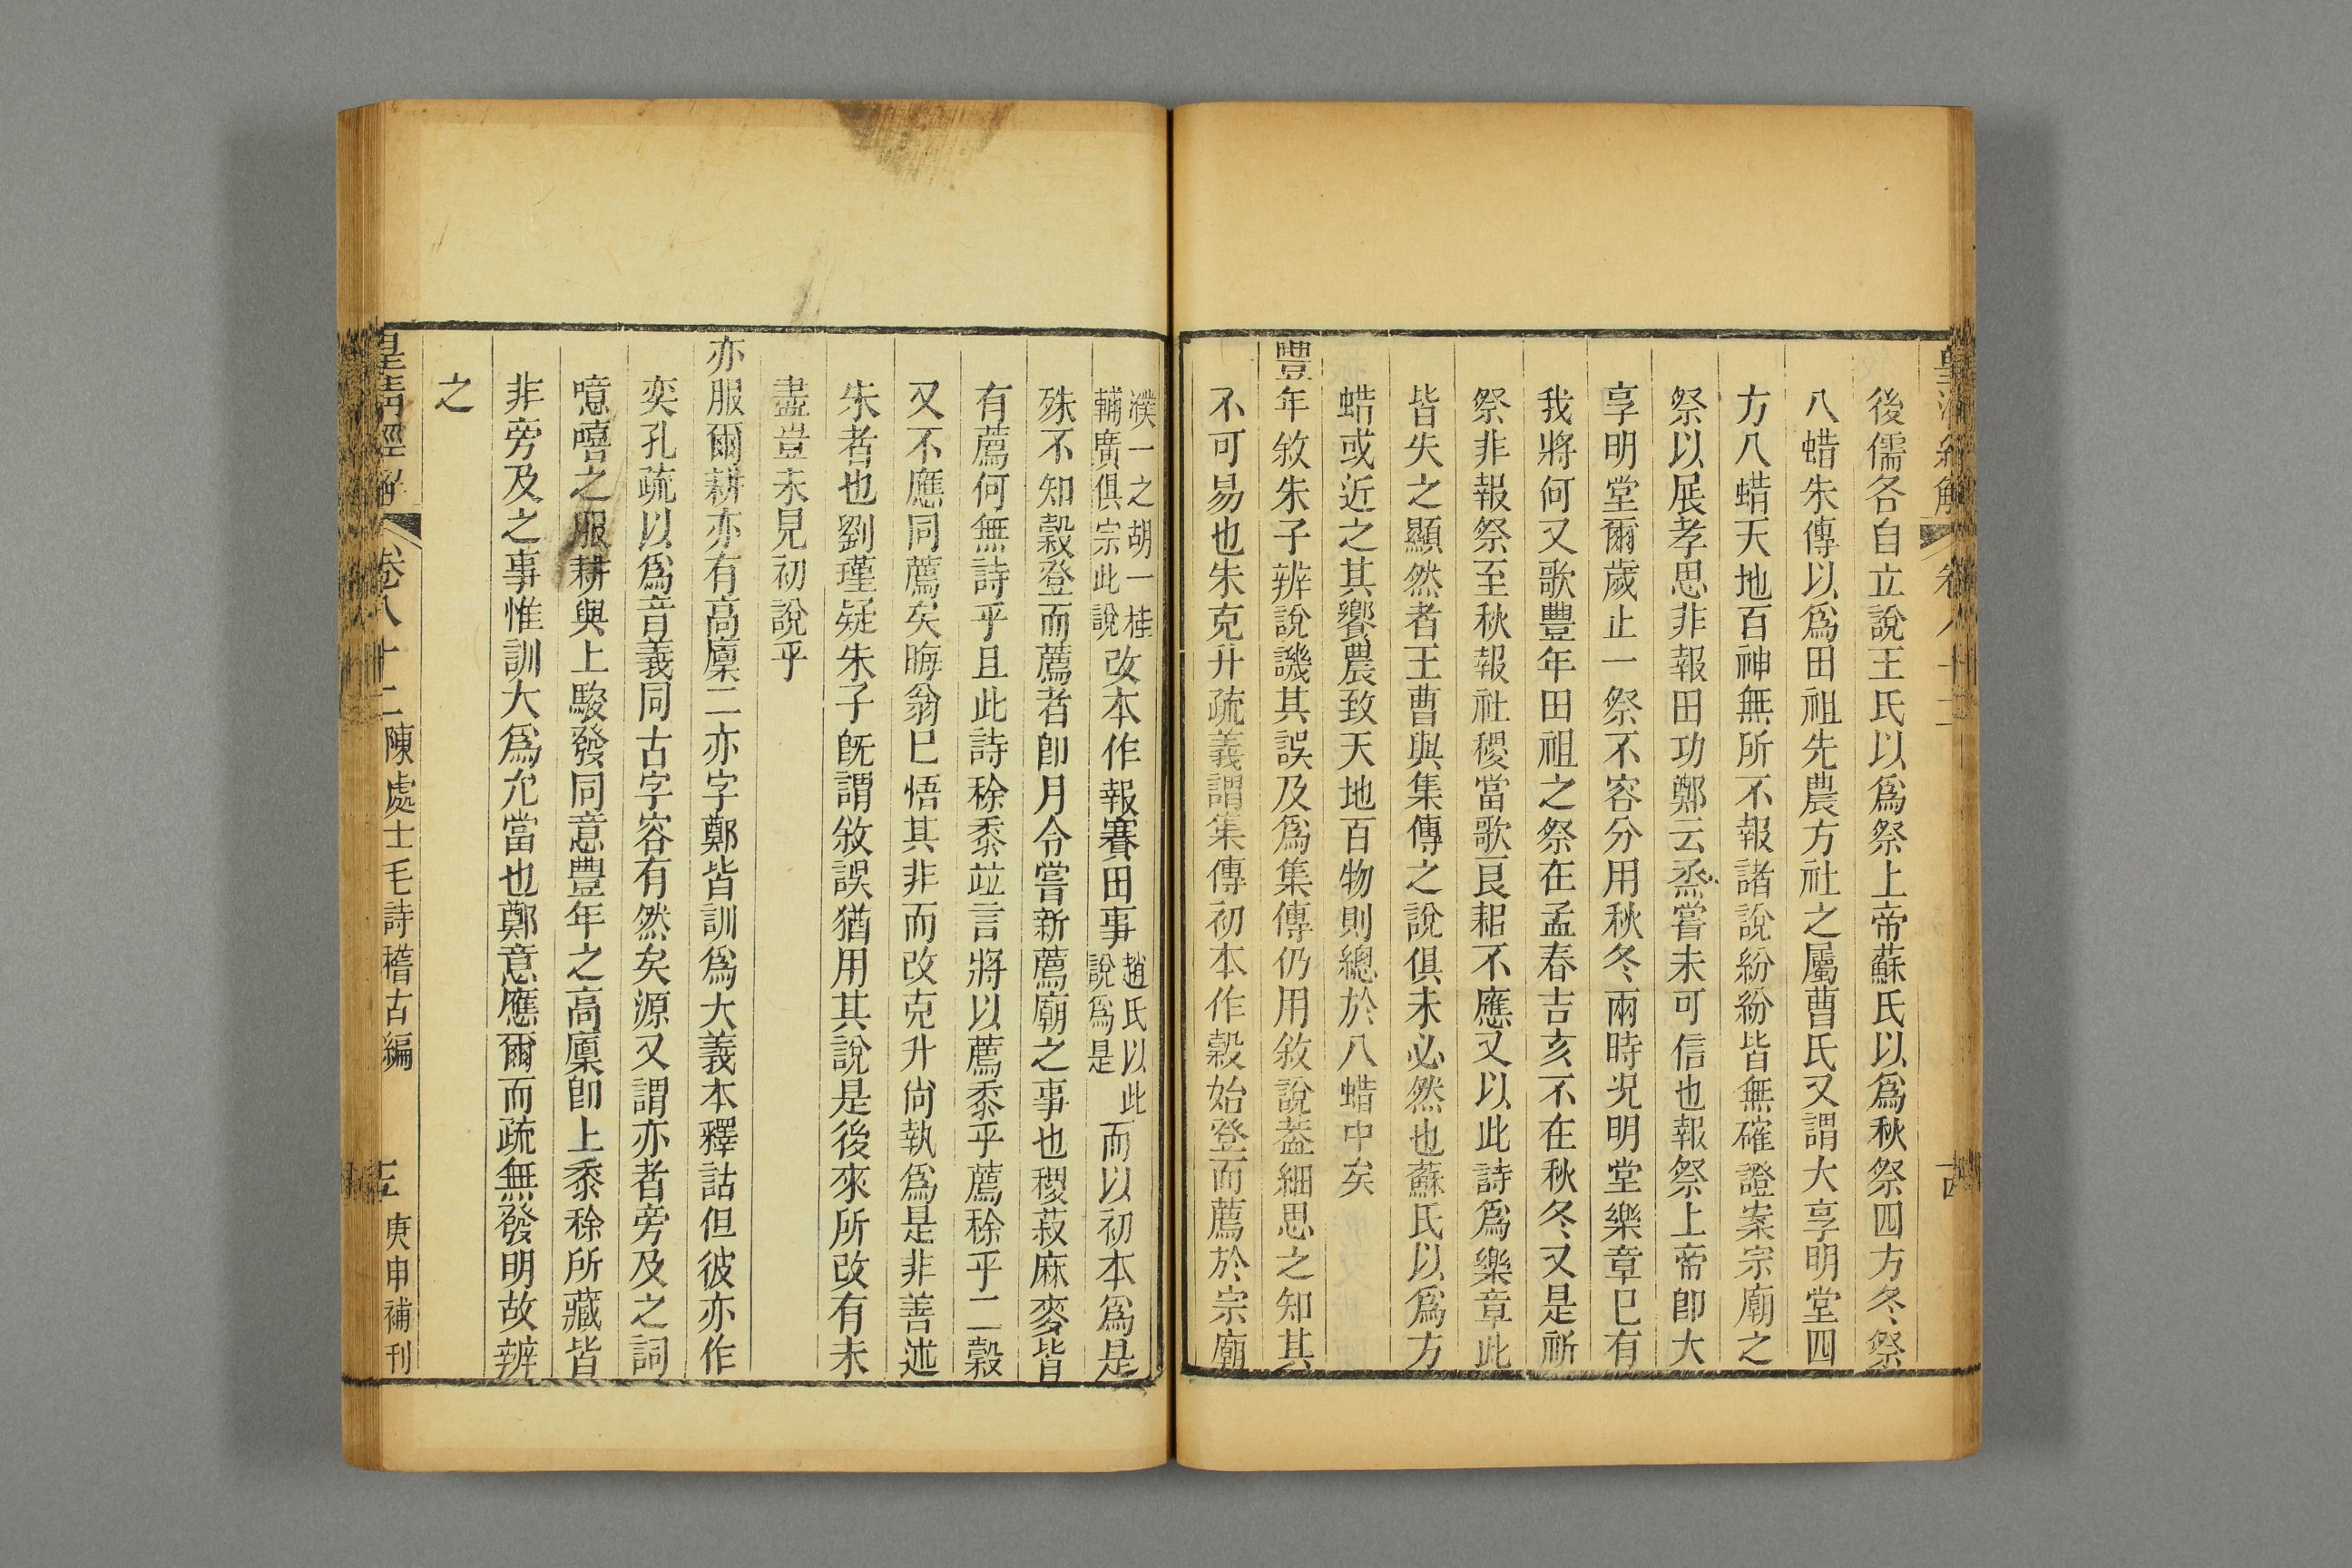 後儒各自立說王氏以爲祭上帝蘇氏以爲秋祭四方冬祭
八蜡朱傳以爲田祖先農方社之屬曹氏又謂大享明堂四
方八蜡天地百神無所不報諸說紛紛皆無確證案宗廟之
祭以展孝思非報田功鄭云烝嘗未可信也報祭上帝卽大
享明堂爾歲止一祭不容分用秋冬兩時况明堂樂章已有
我將何又歌豐年田祖之祭在孟春吉亥不在秋冬又是祈
祭非報祭至秋報社稷當歌良耜不應又以此詩爲樂章此
皆失之顯然者王曹與集傳之說俱未必然也蘇氏以爲方
蜡或近之其饗農致天地百物則總於八蜡中矣
豐年敘朱子辨說譏其誤及爲集傳仍用敘說葢細思之知其
不可易也朱克升疏義謂集傳初本作穀始登而薦於宗廟
濮一之胡一桂
輔廣俱宗此說
改本作報賽田事
趙氏以此
說爲是
而以初本爲是
殊不知穀登而薦者卽月令嘗新薦廟之事也稷菽麻麥皆
有薦何無詩乎且此詩稌黍竝言將以薦黍乎薦稌乎二穀
又不應同薦矣晦翁已悟其非而改克升尙執爲是非善述
朱者也劉瑾疑朱子旣謂敘誤猶用其說是後來所改有未
盡豈未見初說乎
亦服爾耕亦有高廩二亦字鄭皆訓爲大義本釋詁但彼亦作
奕孔疏以爲音義同古字容有然矣源又謂亦者旁及之詞
噫嘻之服耕與上駿發同意豐年之高廩卽上黍稌所藏皆
非旁及之事惟訓大爲允當也鄭意應爾而疏無發明故辨
之
皇清經解 卷八十二 陳處士毛詩稽古編 庚申補刊